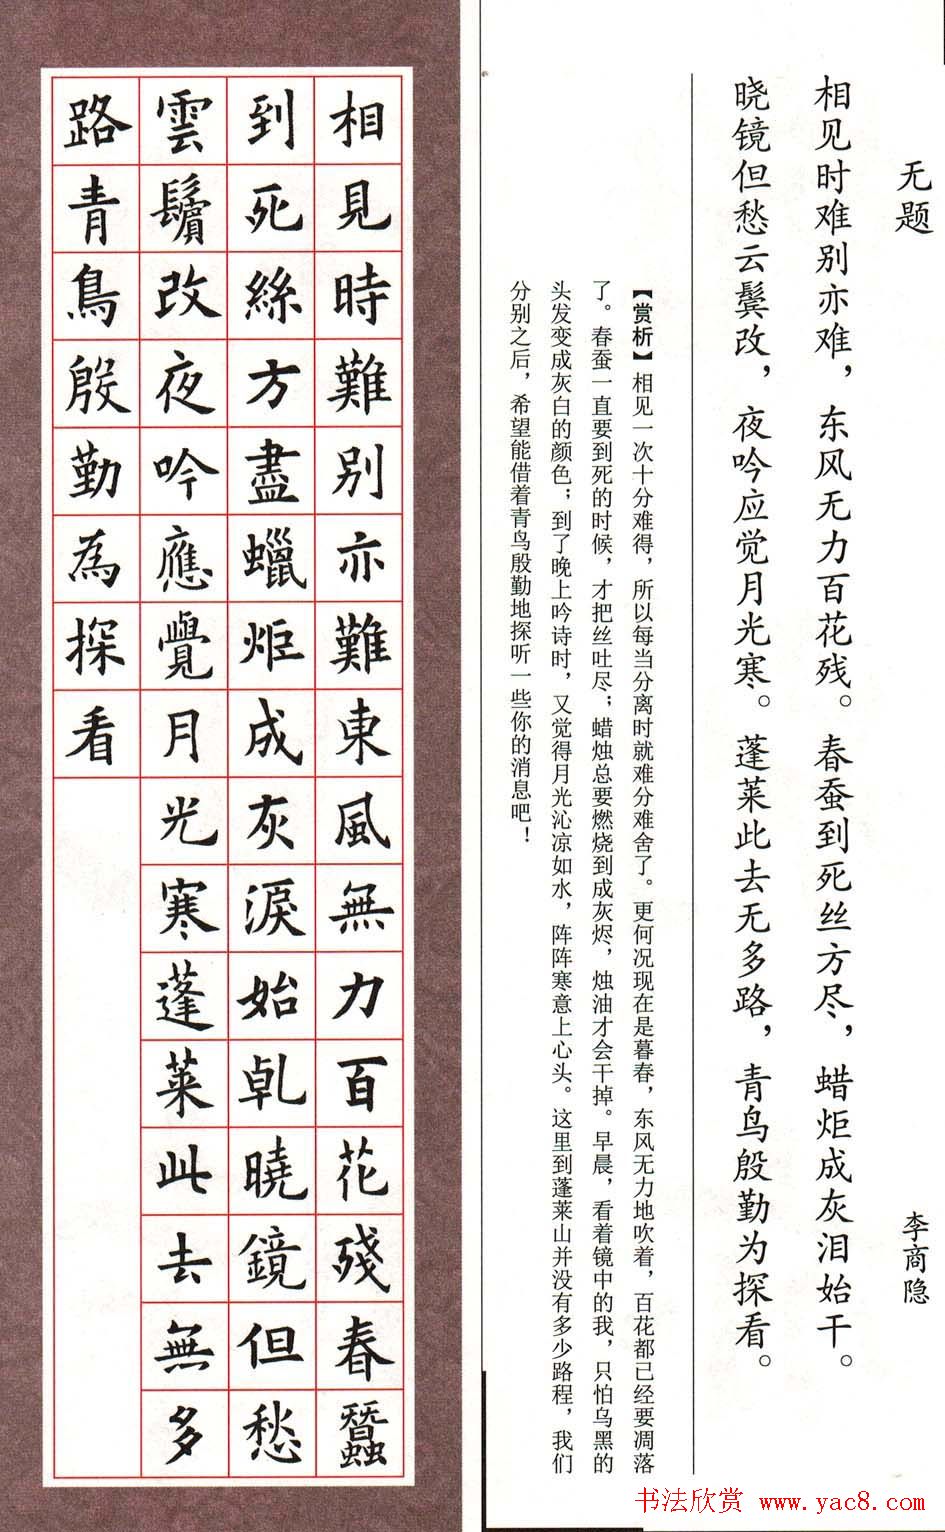 无题
李商隐
相见时难别亦难，东风无力百花残。春蚕到死丝方尽，蜡炬成灰泪始干。
晓镜但愁云鬓改，夜吟应觉月光寒。蓬莱此去无多路，青鸟殷勤为探看。
【赏析】相见一次十分难得，所以每当分离时就难分难舍了。更何况现在是暮春，东风无力地吹着，百花都已经要凋落
了。春蚕一直要到死的时候，才把丝吐尽；蜡烛总要燃烧到成灰烬，烛油才会干掉。早晨，看着镜中的我，只怕乌黑的
头发变成灰白的颜色；到了晚上吟诗时，又觉得月光沁凉如水，阵阵寒意上心头。这里到蓬莱山并没有多少路程，我们
分别之后，希望能借着青鸟殷勤地探听一些你的消息吧！
相見時難別亦難東風無力百花殘春蠶
到死絲方盡蠟炬成灰淚始乾曉鏡但愁
雲鬢改夜吟應覺月光寒蓬萊此去無多
路青鳥殷勤為探看
书法欣赏 www.yac8.com